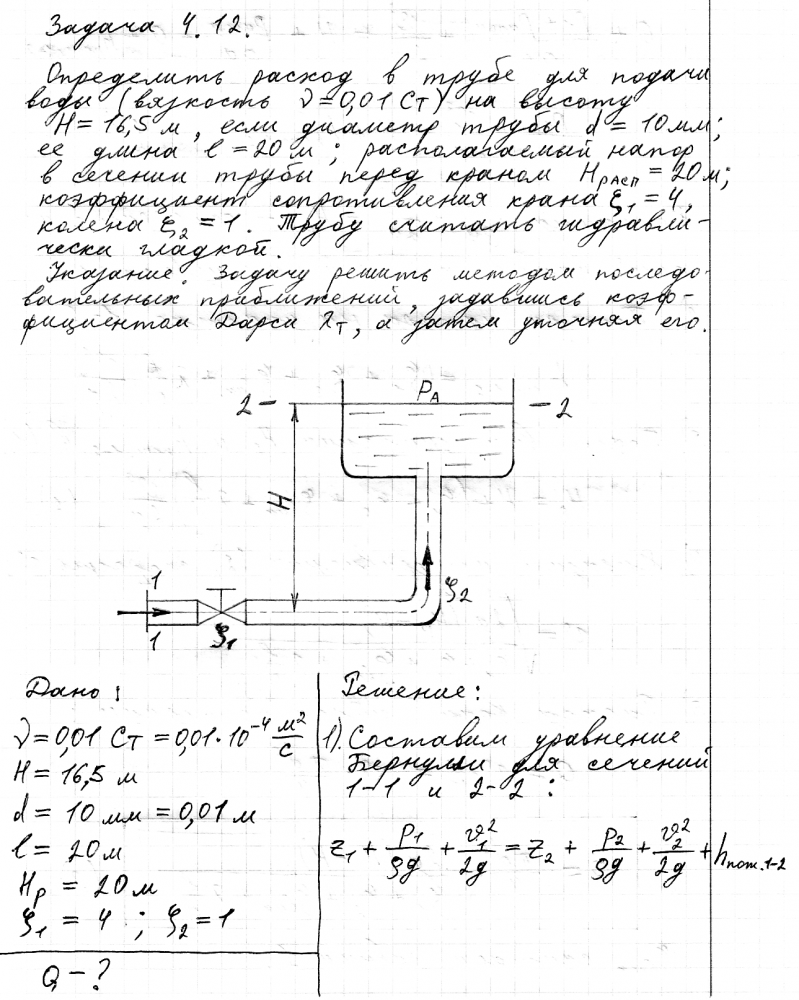 Задача 4.12.
Определить расход в трубе для подачи
воды (вязкость ν = 0,01 Ст) на высоту
H = 16,5 м, если диаметр трубы d = 10 мм;
ее длина l = 20 м; располагаемый напор
в сечении трубы перед краном Hрасп = 20 м;
коэффициент сопротивления крана ξ₁ = 4,
колена ξ₂ = 1. Трубу считать гидравли-
чески гладкой.
Указание. Задачу решить методом последо-
вательных приближений, задавшись коэф-
фициентом Дарси λт, а затем уточняя его.
2 - PА - 2
H
1
ξ₂
1
ξ₁
Дано:
ν = 0,01 Ст = 0,01·10⁻⁴ м²/с
H = 16,5 м
d = 10 мм = 0,01 м
l = 20 м
Hр = 20 м
ξ₁ = 4 ; ξ₂ = 1
Q - ?
Решение:
1). Составим уравнение
Бернулли для сечений
1-1 и 2-2 :
z₁ + P₁/ρg + υ₁²/2g = z₂ + P₂/ρg + υ₂²/2g + hпот.1-2